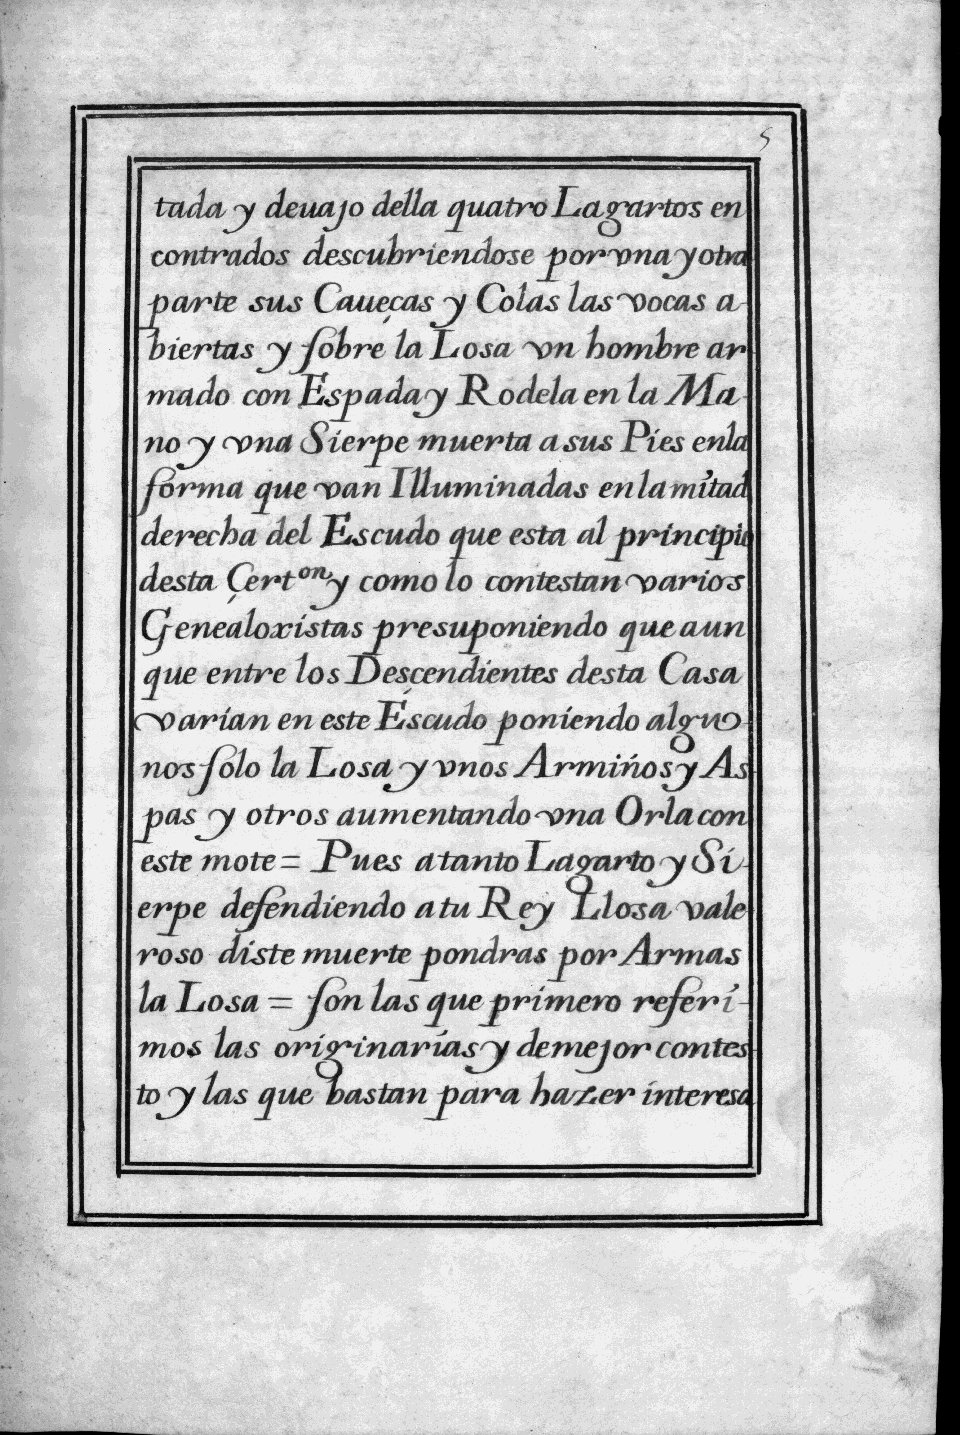 5
tada y deuajo della quatro Lagartos en
contrados descubriendose por vna y otra
parte sus Caueças y Colas las vocas a-
biertas y sobre la Losa vn hombre ar-
mado con Espada y Rodela en la Ma-
no y vna Sierpe muerta a sus Pies en la
forma que van Illuminadas en la mitad
derecha del Escudo que esta al principio
desta Çert.on y como lo contestan varios
Genealoxistas presuponiendo que aun
que entre los Desçendientes desta Casa
varían en este Escudo poniendo algu-
nos sólo la Losa y vnos Armiños y As-
pas y otros aumentando vna Orla con
este mote = Pues a tanto Lagarto y Si-
erpe defendiendo a tu Rey Llosa vale-
roso diste muerte pondras por Armas
la Losa = son las que primero referi-
mos las originarías y de mejor contes-
to y las que bastan para hazer interesa